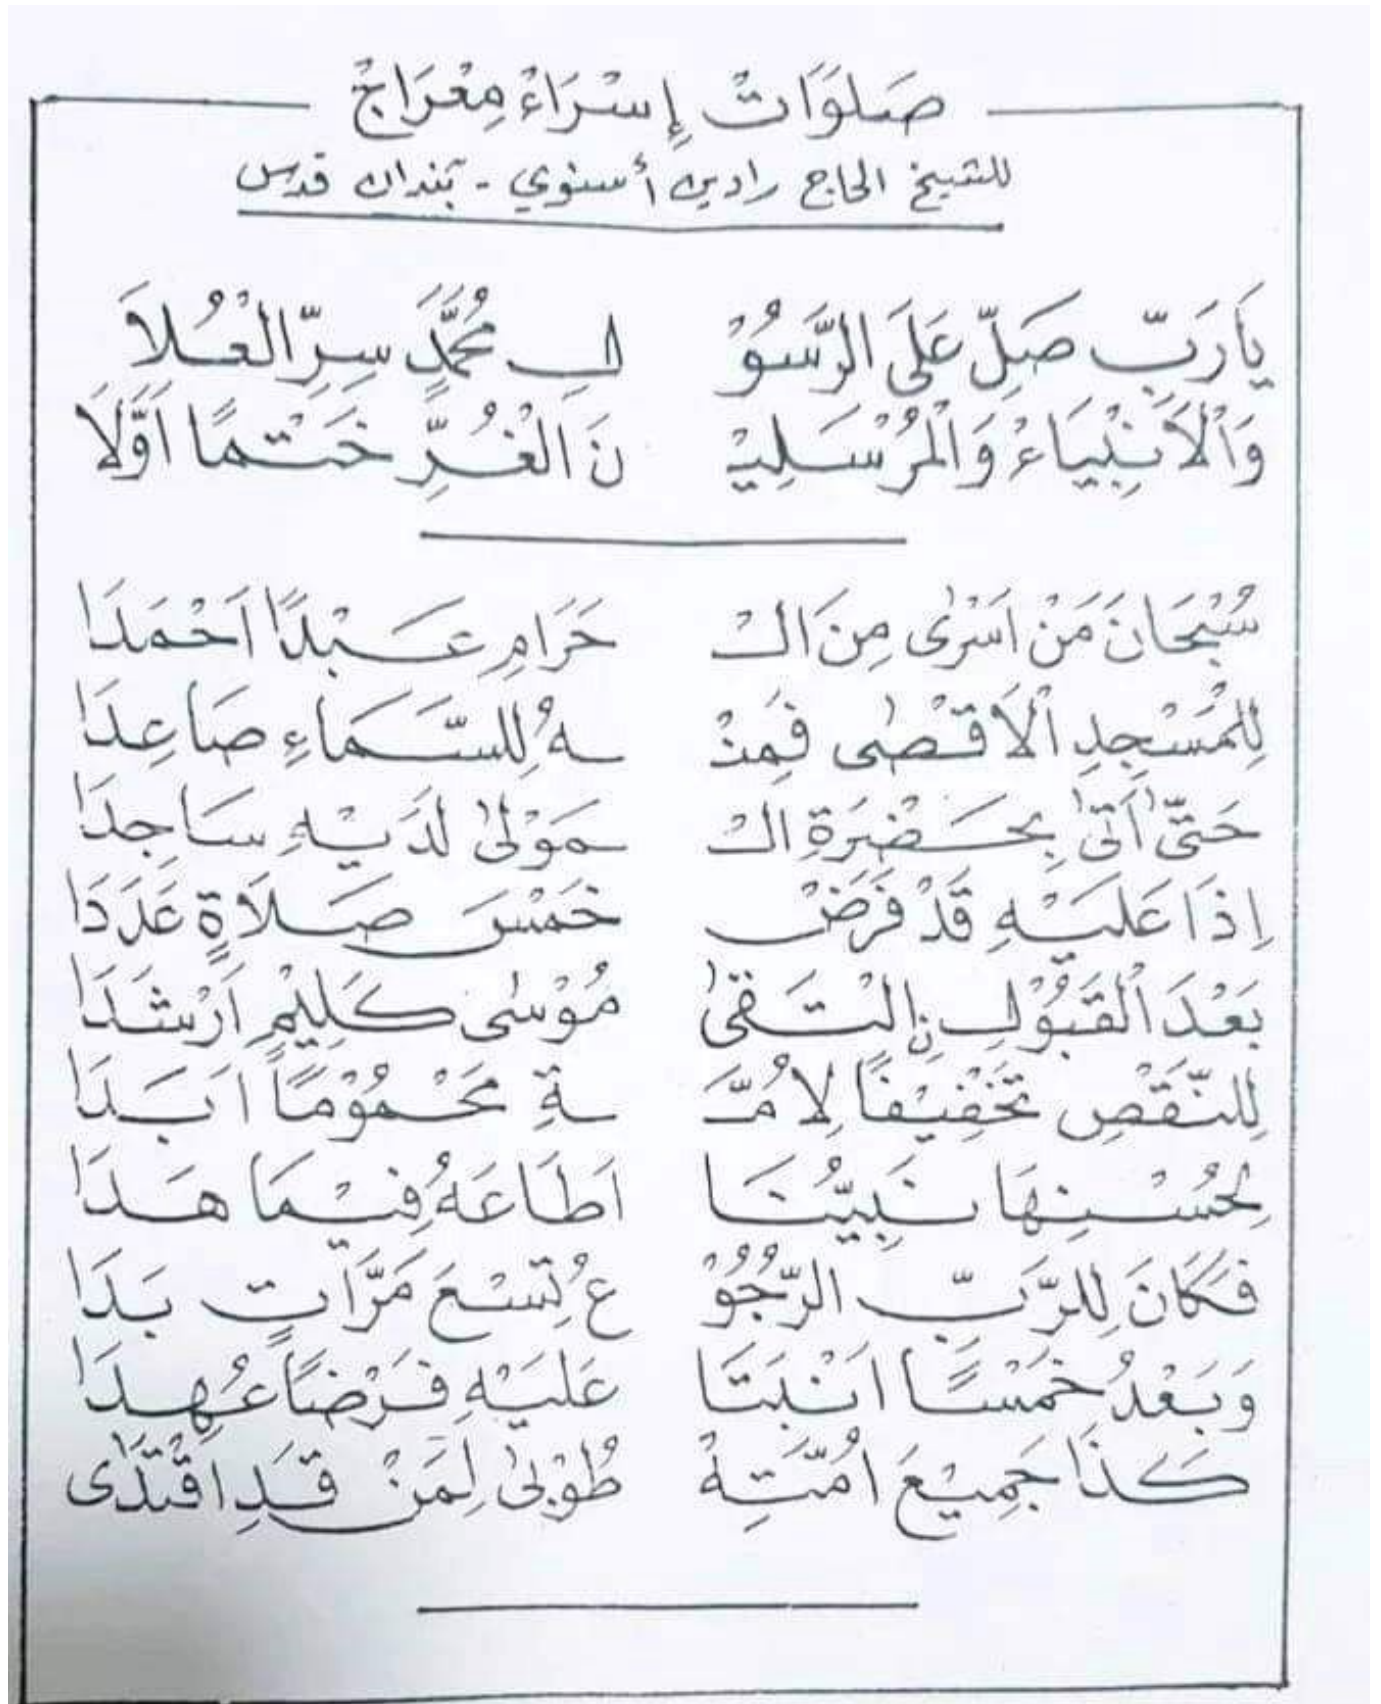 صَلَوَاتْ إِسْرَاءْ مِعْرَاجْ
للشيخ الحاج رادين أسنوي - بندان قدس
يَارَبِّ صَلِّ عَلَى الرَّسُوْ لِ مُحَمَّدٍ سِرِّ الْعُلاَ
وَالْاَنْبِيَاءْ وَالْمُرْسَلِيْـ نَ الْغُرِّ خَتْمًا اَوَّلَا
سُبْحَانَ مَنْ اَسْرٰى مِنَ الْـ حَرَامِ عَبْدًا اَحْمَدَا
لِلْمَسْجِدِ الْاَقْصٰى فَمِنْـ ـهُ لِلسَّمَاءِ صَاعِدَا
حَتّٰى اَتٰى بِحَضْرَةِ الْـ ـمَوْلٰى لَدَيْهِ سَاجِدَا
اِذَا عَلَيْهِ قَدْ فَرَضْ خَمْسَ صَلَاةٍ عَدَدَا
بَعْدَ الْقَبُوْلِ نِ الْتَقٰى مُوْسٰى كَلِيْمِ اَرْشَدَا
لِلنَّقْصِ تَخْفِيْفًا لِاُمَّـ ـةِ مَحْمُوْمًا اَبَدَا
لِحُسْنِهَا نَبِيُّنَا اَطَاعَهُ فِيْمَا هَدَا
فَكَانَ لِلرَّبِّ الرُّجُوْ عُ تِسْعَ مَرَّاتٍ بَدَا
وَبَعْدُ خَمْسًا اَثْبَتَا عَلَيْهِ فَرْضًا عُهِدَا
كَذَا جَمِيْعَ اُمَّتِهْ طُوْبٰى لِمَنْ قَدِ اقْتَدٰى